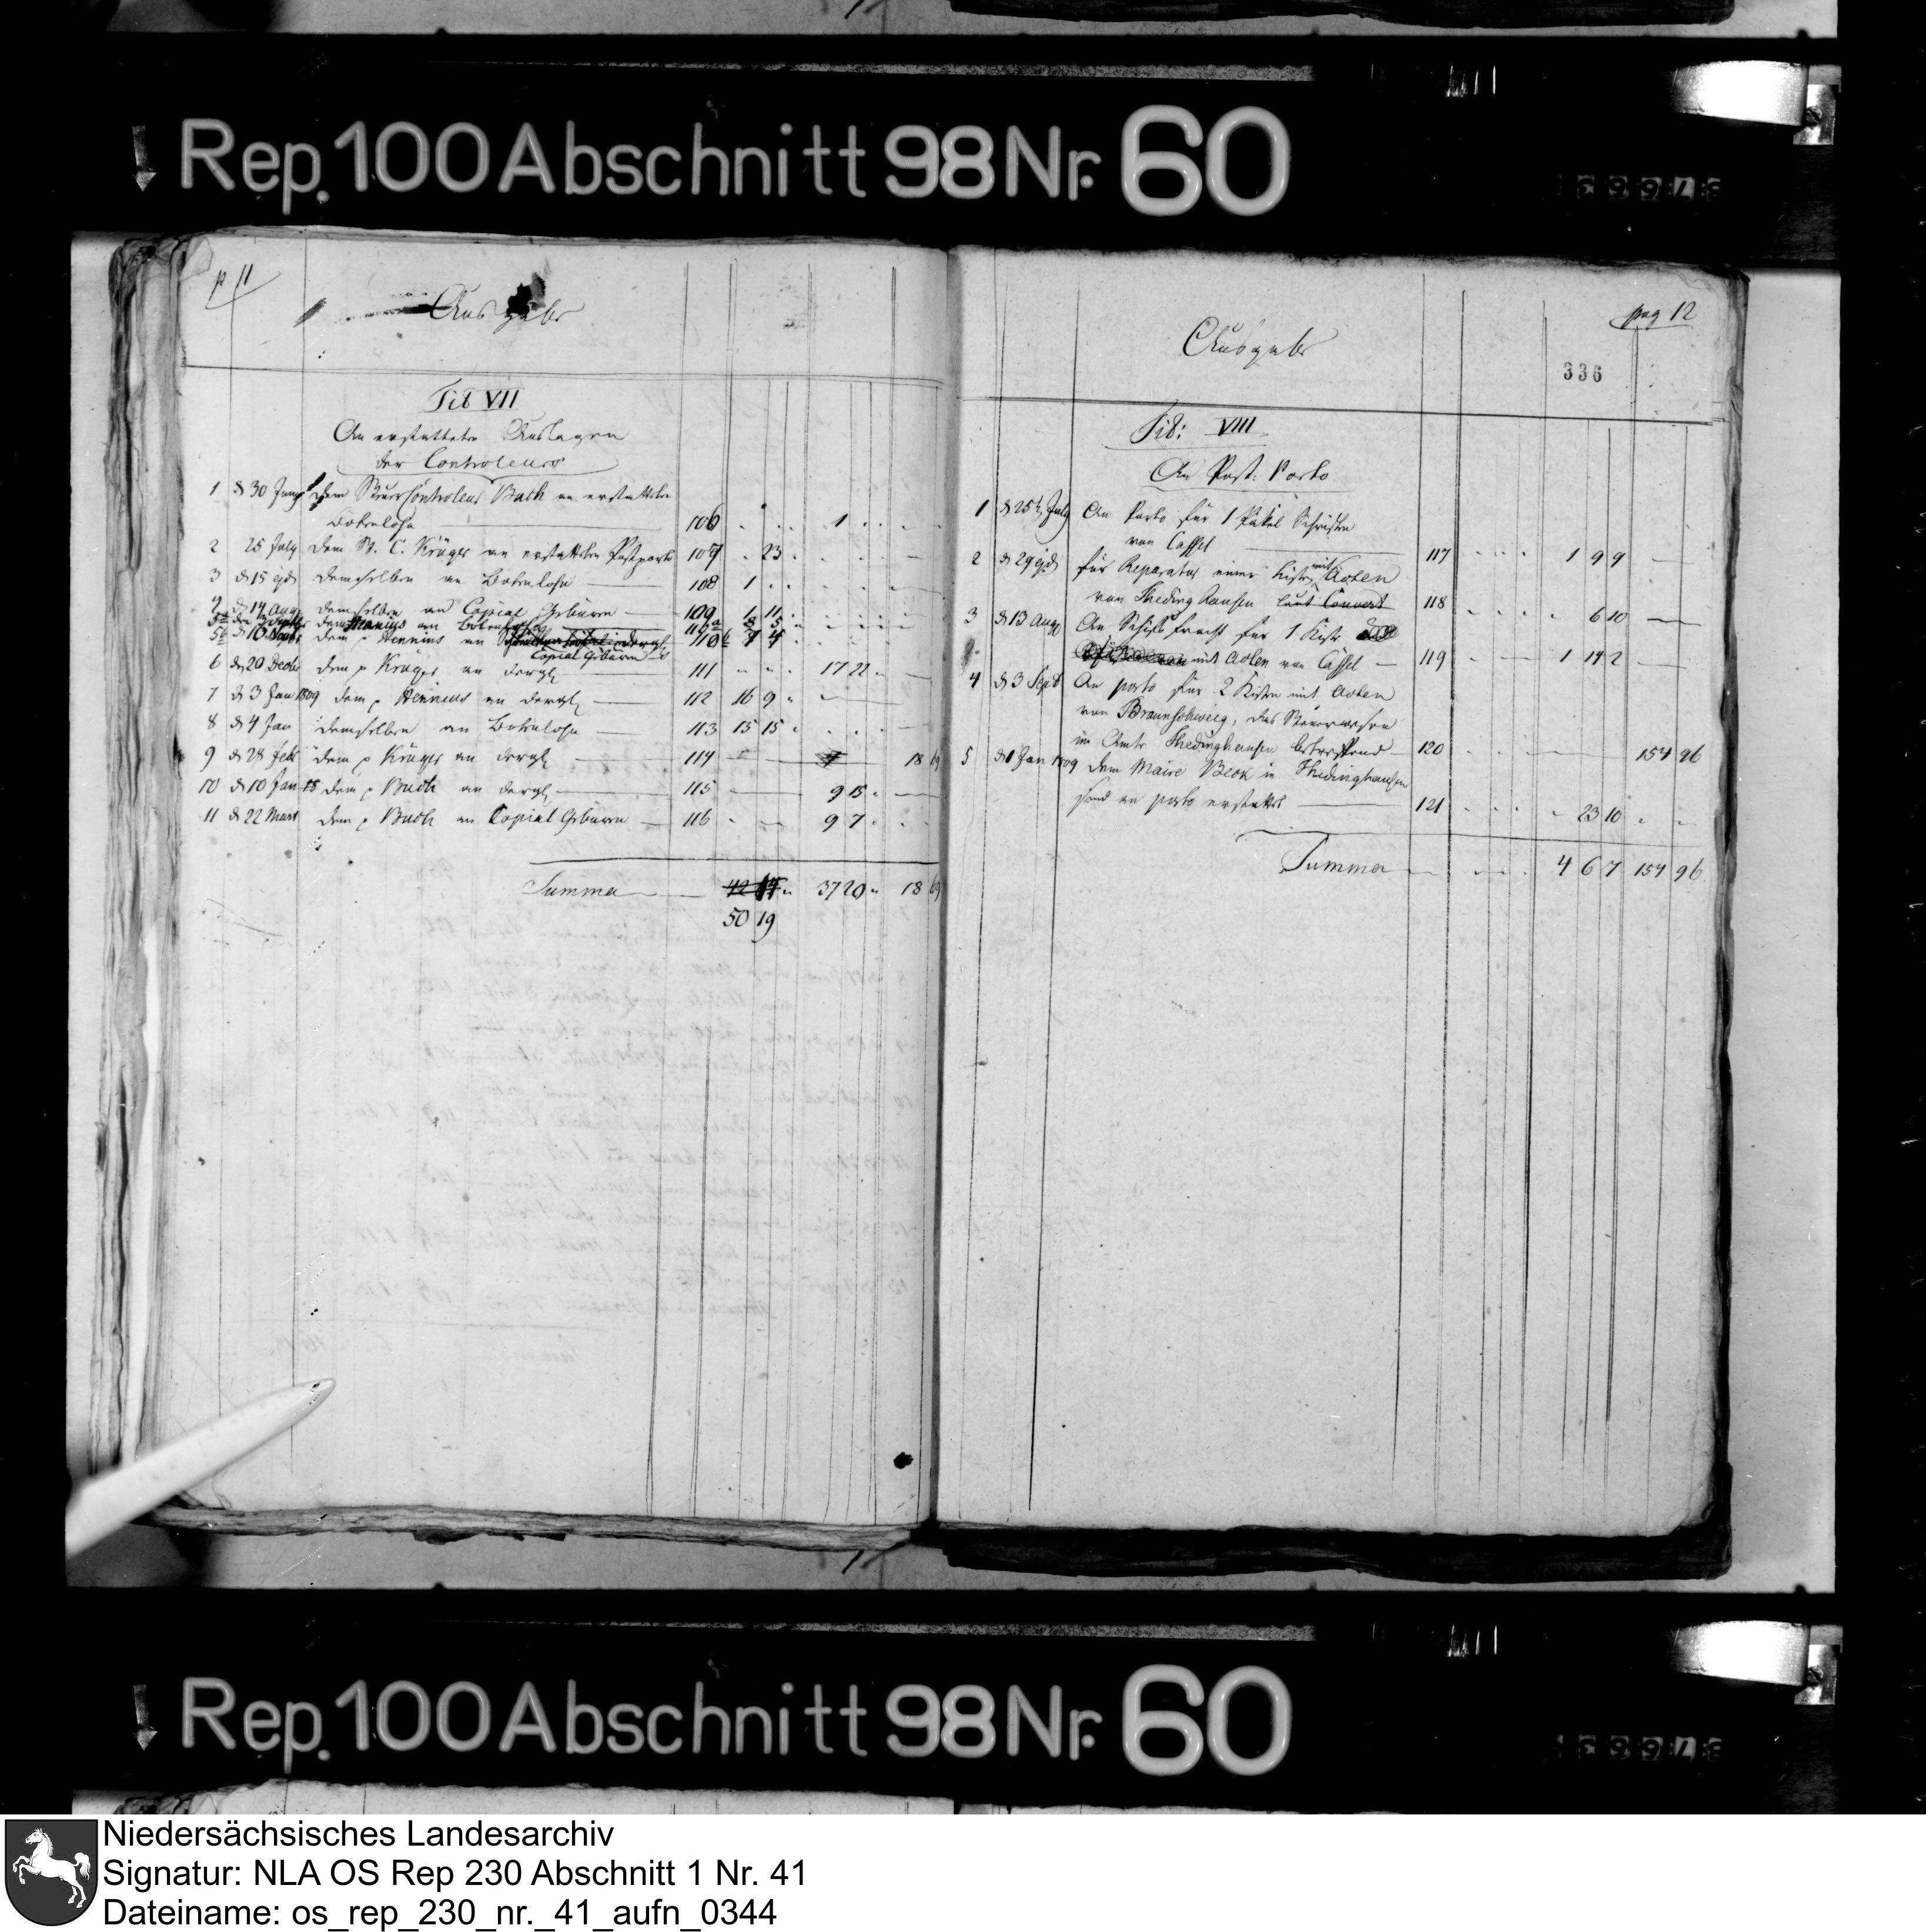 Rep. 100 Abschnitt 98 Nr. 60
p 11
Ausgabe
Tit VII
An erstattete Auslagen
der Controleurs
1 d 30 Juny dem Steuer Controleur Buch an erstatteten
Botenlohn 106 1
2 25 July dem St. C. Krüger an erstatteten Postporto 107 23
3 d 15 ejd demselben an Botenlohn 108 1
4 d 14 Aug demselben an Copial Gebüren 109 1 11
an Botenlohn 110a 8 5
5b dem p Hennius an 110b 7 4
Copial Gebüren
6 d 20 Decbr dem p Krüger an dergl 111 17 22
7 d 3 Jan 1809 dem p Hennius an dergl 112 16 9
8 d 4 Jan demselben an Botenlohn 113 15 15
9 d 28 Febr dem p Krüger an dergl 114 18 69
10 d 10 Jan dem p Buch an dergl 115 9 15
11 d 22 Mart dem p Buch an Copial Gebüren 116 9 7
Summa 42 14 37 20 18 69
50 19
pag 12
Ausgabe
336
Tit: VIII
An Post: Porto
1 d 25t July An Porto für 1 Paket Schriften
von Cassel 117 1 9 9
2 d 29 ejd für Reparatur einer Kiste mit Acten
von Thedinghausen laut Couvert 118 6 10
3 d 13 Aug An Schifsfracht für 1 Kiste
mit Acten von Cassel 119 1 14 2
4 d 3 Sept An porto für 2 Kisten mit Acten
von Braunschweig, das Steuerwesen
im Amte Thedinghausen betreffend 120 154 96
5 d 1 Jan 1809 dem Maire Beck in Thedinghausen
sind an porto erstattet 121 23 10
Summa 4 6 7 154 96
Rep. 100 Abschnitt 98 Nr. 60
Niedersächsisches Landesarchiv
Signatur: NLA OS Rep 230 Abschnitt 1 Nr. 41
Dateiname: os_rep_230_nr._41_aufn_0344